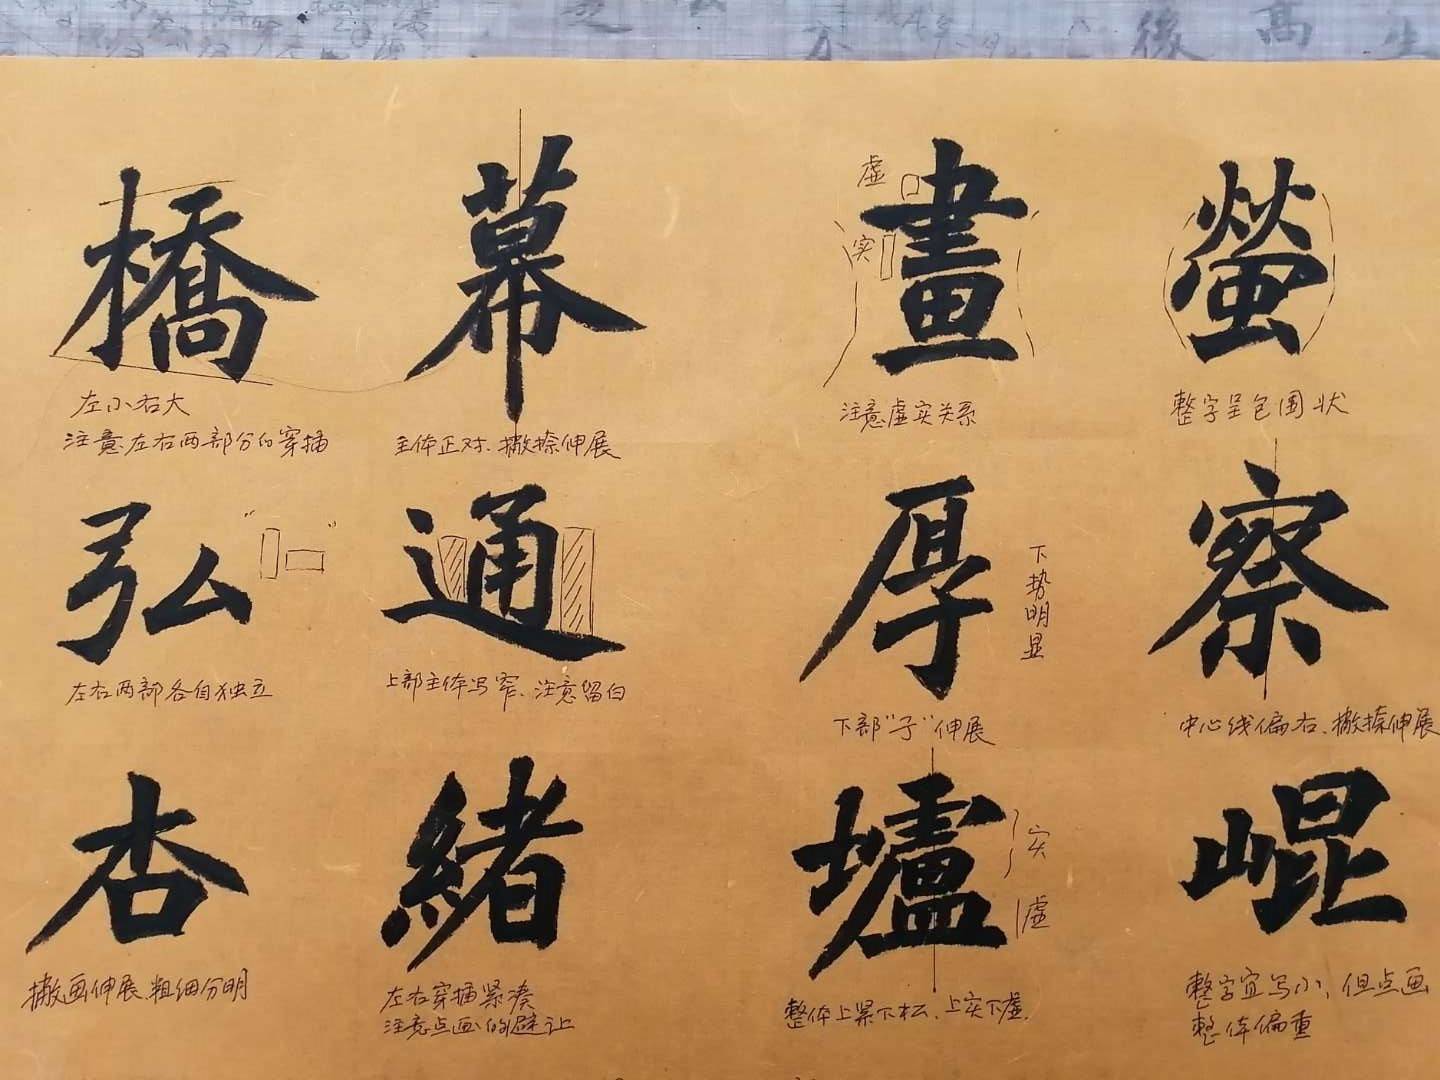 後 高 生
橋
左小右大
注意左右两部分的穿插
幕
主体正对、撇捺伸展
畫
虚
实
注意虚实关系
螢
整字呈包围状
弘
左右两部各自独立
通
上部主体写窄、注意留白
厚
下势明显
下部"子"伸展
察
中心线偏右、撇捺伸展
杏
撇画伸展 粗细分明
緒
左右穿插紧凑
注意点画的避让
壚
实
虚
整体上紧下松、上实下虚.
崐
整字宜写小、但点画
整体偏重